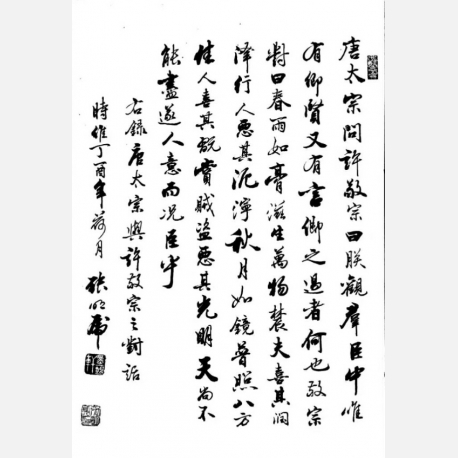 唐太宗問許敬宗曰朕觀羣臣中唯
有卿賢又有言卿之過者何也敬宗
對曰春雨如膏滋生萬物農夫喜其潤
澤行人惡其泥濘秋月如鏡普照八方
佳人喜其翫賞賊盜惡其光明天尚不
能盡遂人意而況臣乎
右錄唐太宗與許敬宗之對話
時維丁酉年荷月 張